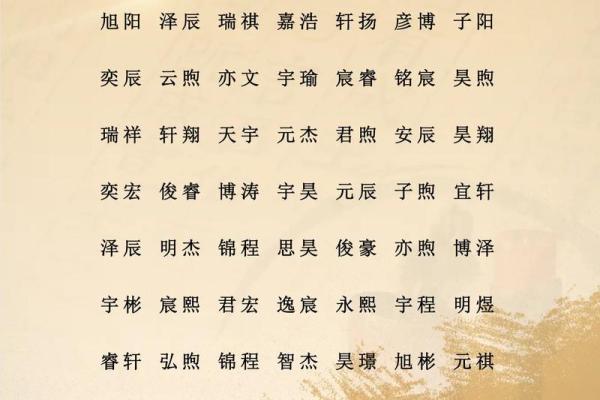 旭阳 泽辰 瑞祺 嘉浩 轩扬 彦博 子阳
奕辰 云煦 亦文 宇瑜 宸睿 铭宸 昊煦
瑞祥 轩翔 天宇 元杰 君煦 安辰 昊翔
奕宏 俊睿 博涛 宇昊 元辰 子煦 宜轩
泽辰 明杰 锦程 思昊 俊豪 亦煦 博泽
宇彬 宸熙 君宏 逸宸 永熙 宇程 明煜
睿轩 弘煦 锦程 智杰 昊璟 旭彬 元祺